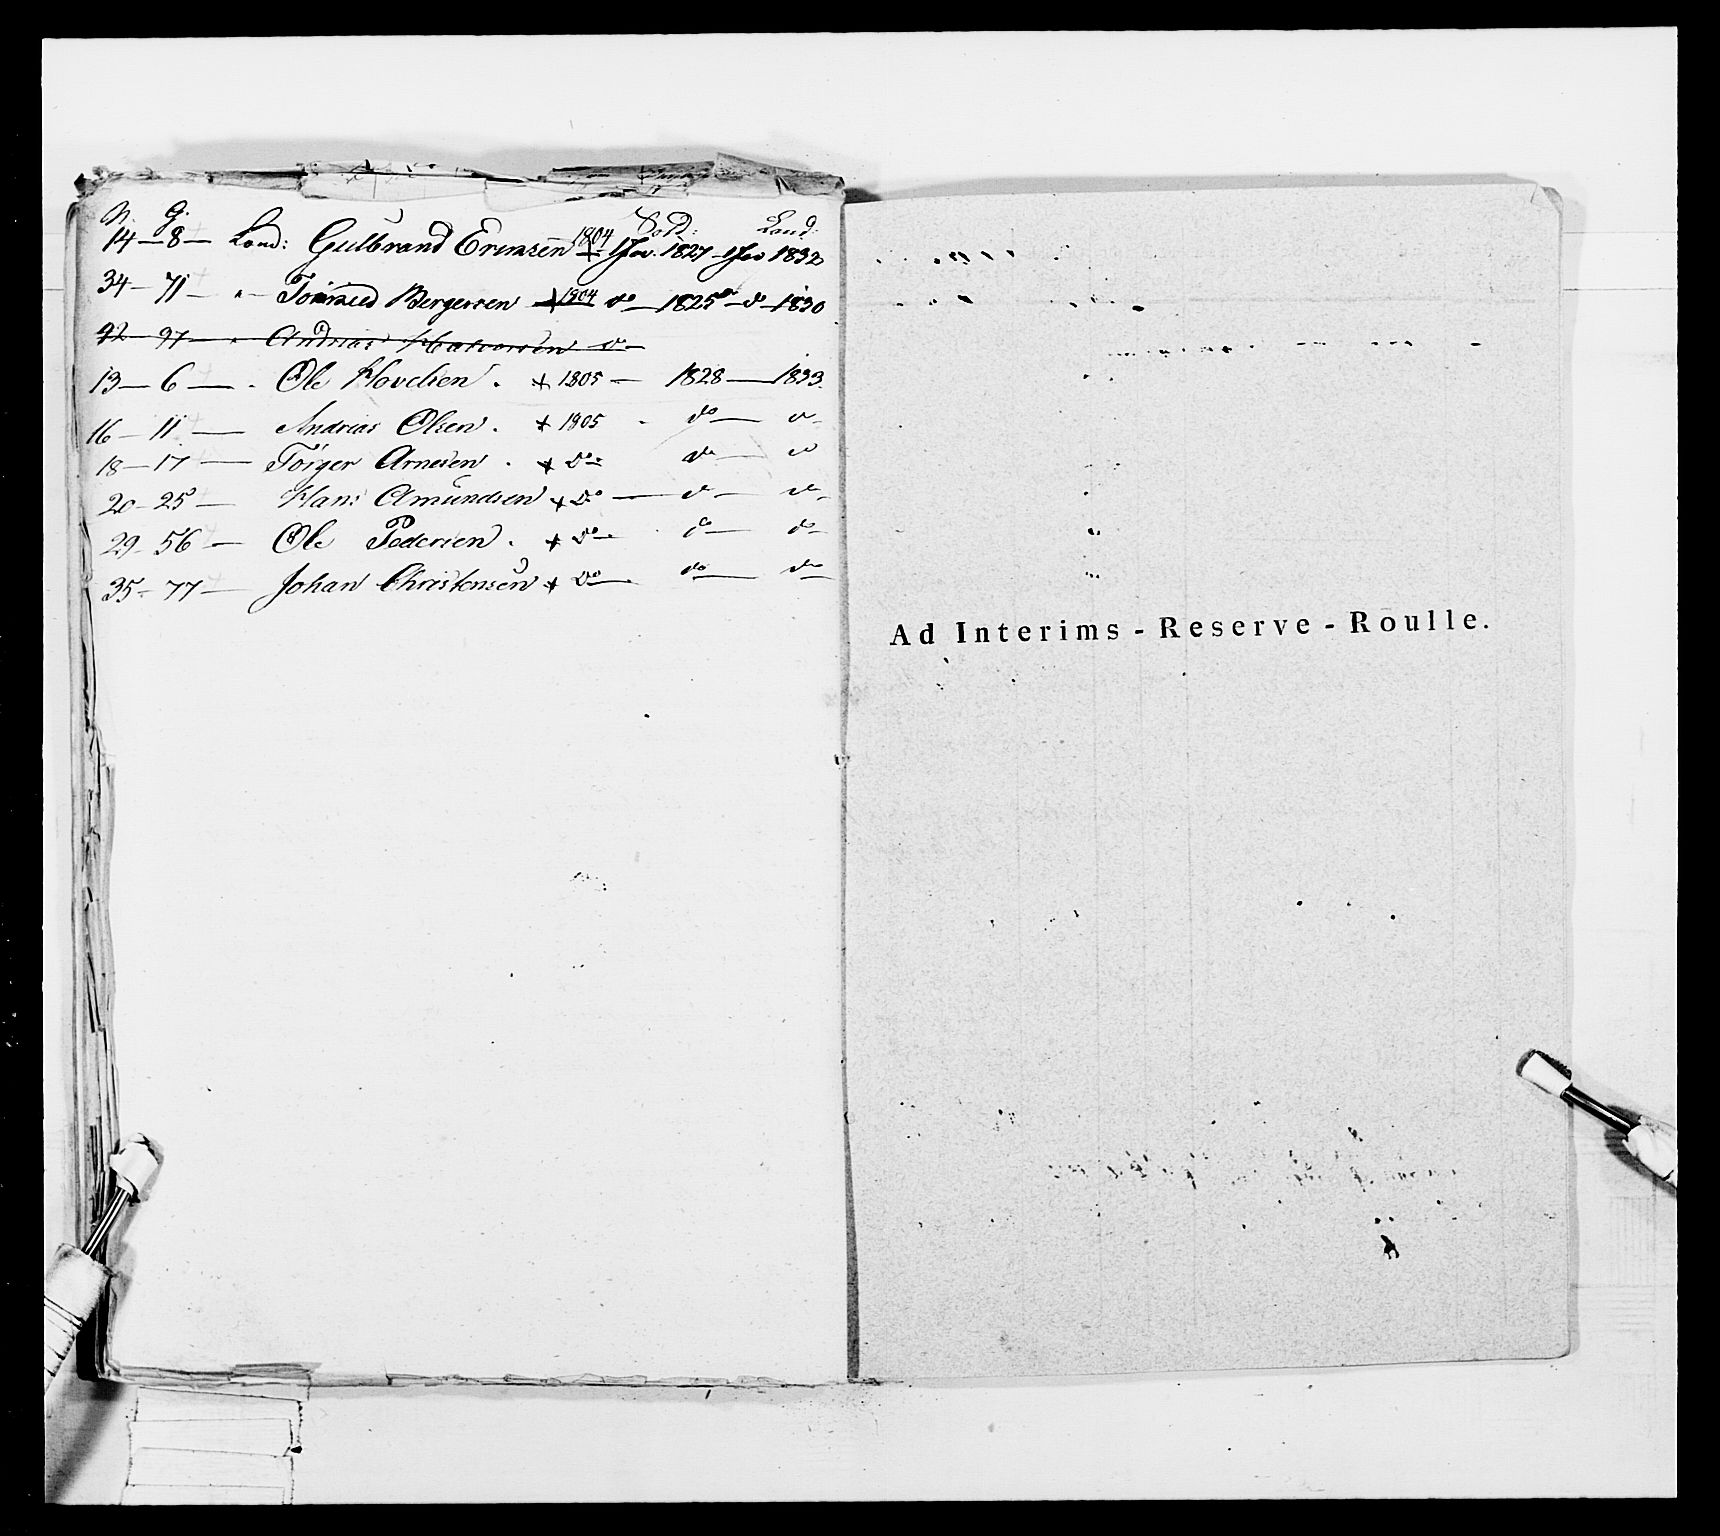 N. G. Sold: Land:
14 — 8 — Land: Gulbrand 1804 1 Jan. 1827 1 Jan 1832
34 — 71 — " — Bergersen 1804 do — 1825 — do — 1830
42 — 97 — " Andrias Halvorsen do —
13 — 6 — . Ole Hovelsen . + 1805 — 1828 — 1833.
16 — 11 — Andrias Olsen . + 1805 - do — do -
18 — 17 — Törger Arnesen . + do do — do
20 — 25 — Hans Amundsen + do — do — do -
29 — 56 — Ole Pedersen . + do — do — do —
35 — 77 — Johan Christensen + do — do — do —
Ad Interims - Reserve - Roulle.